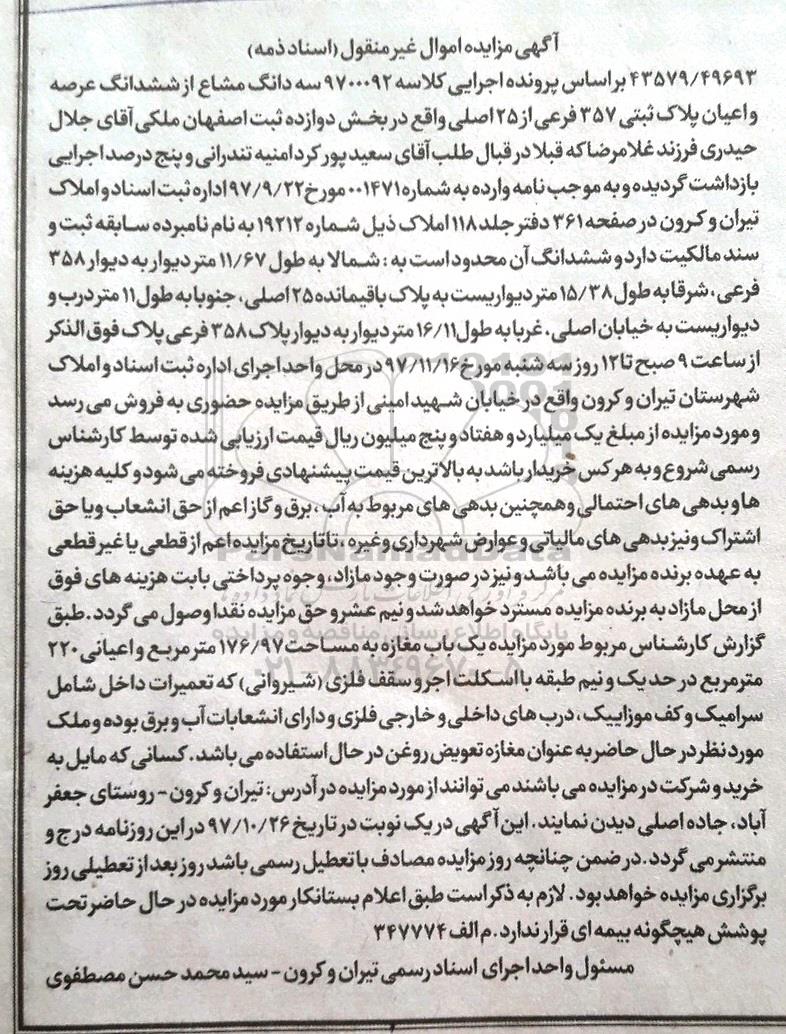 آگهی مزایده اموال غیر منقول (اسناد ذمه)
۴۳۵۷۹/۴۹۶۹۳ بر اساس پرونده اجرایی کلاسه ۹۷۰۰۰۹۲ سه دانگ مشاع از ششدانگ عرصه
و اعیان پلاک ثبتی ۳۵۷ فرعی از ۲۵ اصلی واقع در بخش دوازده ثبت اصفهان ملکی آقای جلال
حیدری فرزند غلامرضا که قبلا در قبال طلب آقای سعید پور کرد امنیه تندرانی و پنج درصد اجرایی
بازداشت گردیده و به موجب نامه وارده به شماره ۰۰۱۴۷۱ مورخ ۹۷/۹/۲۲ اداره ثبت اسناد و املاک
تیران و کرون در صفحه ۳۶۱ دفتر جلد ۱۱۸ املاک ذیل شماره ۱۹۲۱۲ به نام نامبرده سابقه ثبت و
سند مالکیت دارد و ششدانگ آن محدود است به : شمالا به طول ۱۱/۶۷ متر دیوار به دیوار ۳۵۸
فرعی، شرقا به طول ۱۵/۳۸ متر دیواریست به پلاک باقیمانده ۲۵ اصلی ، جنوبا به طول ۱۱ متر درب و
دیواریست به خیابان اصلی، غربا به طول ۱۶/۱۱ متر دیوار به دیوار پلاک ۳۵۸ فرعی پلاک فوق الذکر
از ساعت ۹ صبح تا ۱۲ روز سه شنبه مورخ ۹۷/۱۱/۱۶ در محل واحد اجرای اداره ثبت اسناد و املاک
شهرستان تیران و کرون واقع در خیابان شهید امینی از طریق مزایده حضوری به فروش می رسد
و مورد مزایده از مبلغ یک میلیارد و هفتاد و پنج میلیون ریال قیمت ارزیابی شده توسط کارشناس
رسمی شروع و به هر کس خریدار باشد به بالاترین قیمت پیشنهادی فروخته می شود و کلیه هزینه
ها و بدهی های احتمالی و همچنین بدهی های مربوط به آب ، برق و گاز اعم از حق انشعاب و یا حق
اشتراک و نیز بدهی های مالیاتی و عوارض شهرداری و غیره ، تا تاریخ مزایده اعم از قطعی یا غیر قطعی
به عهده برنده مزایده می باشد و نیز در صورت وجود مازاد، وجوه پرداختی بابت هزینه های فوق
از محل مازاد به برنده مزایده مسترد خواهد شد و نیم عشر و حق مزایده نقدا وصول می گردد . طبق
گزارش کارشناس مربوط مورد مزایده یک باب مغازه به مساحت ۱۷۶/۹۷ متر مربع و اعیانی ۲۲۰
متر مربع در حد یک و نیم طبقه با اسکلت اجر و سقف فلزی (شیروانی) که تعمیرات داخل شامل
سرامیک و کف موزاییک ، درب های داخلی و خارجی فلزی و دارای انشعابات آب و برق بوده و ملک
مورد نظر در حال حاضر به عنوان مغازه تعویض روغن در حال استفاده می باشد. کسانی که مایل به
خرید و شرکت در مزایده می باشند می توانند از مورد مزایده در آدرس: تیران و کرون - روستای جعفر
آباد، جاده اصلی دیدن نمایند . این آگهی در یک نوبت در تاریخ ۹۷/۱۰/۲۶ در این روزنامه درج و
منتشر می گردد .در ضمن چنانچه روز مزایده مصادف با تعطیل رسمی باشد روز بعد از تعطیلی روز
برگزاری مزایده خواهد بود. لازم به ذکر است طبق اعلام بستانکار مورد مزایده در حال حاضر تحت
پوشش هیچگونه بیمه ای قرار ندارد .م الف ۳۴۷۷۷۴
مسئول واحد اجرای اسناد رسمی تیران و کرون - سید محمد حسن مصطفوی
ParsNamadData
پایگاه اطلاع رسانی مناقصه و مزایده